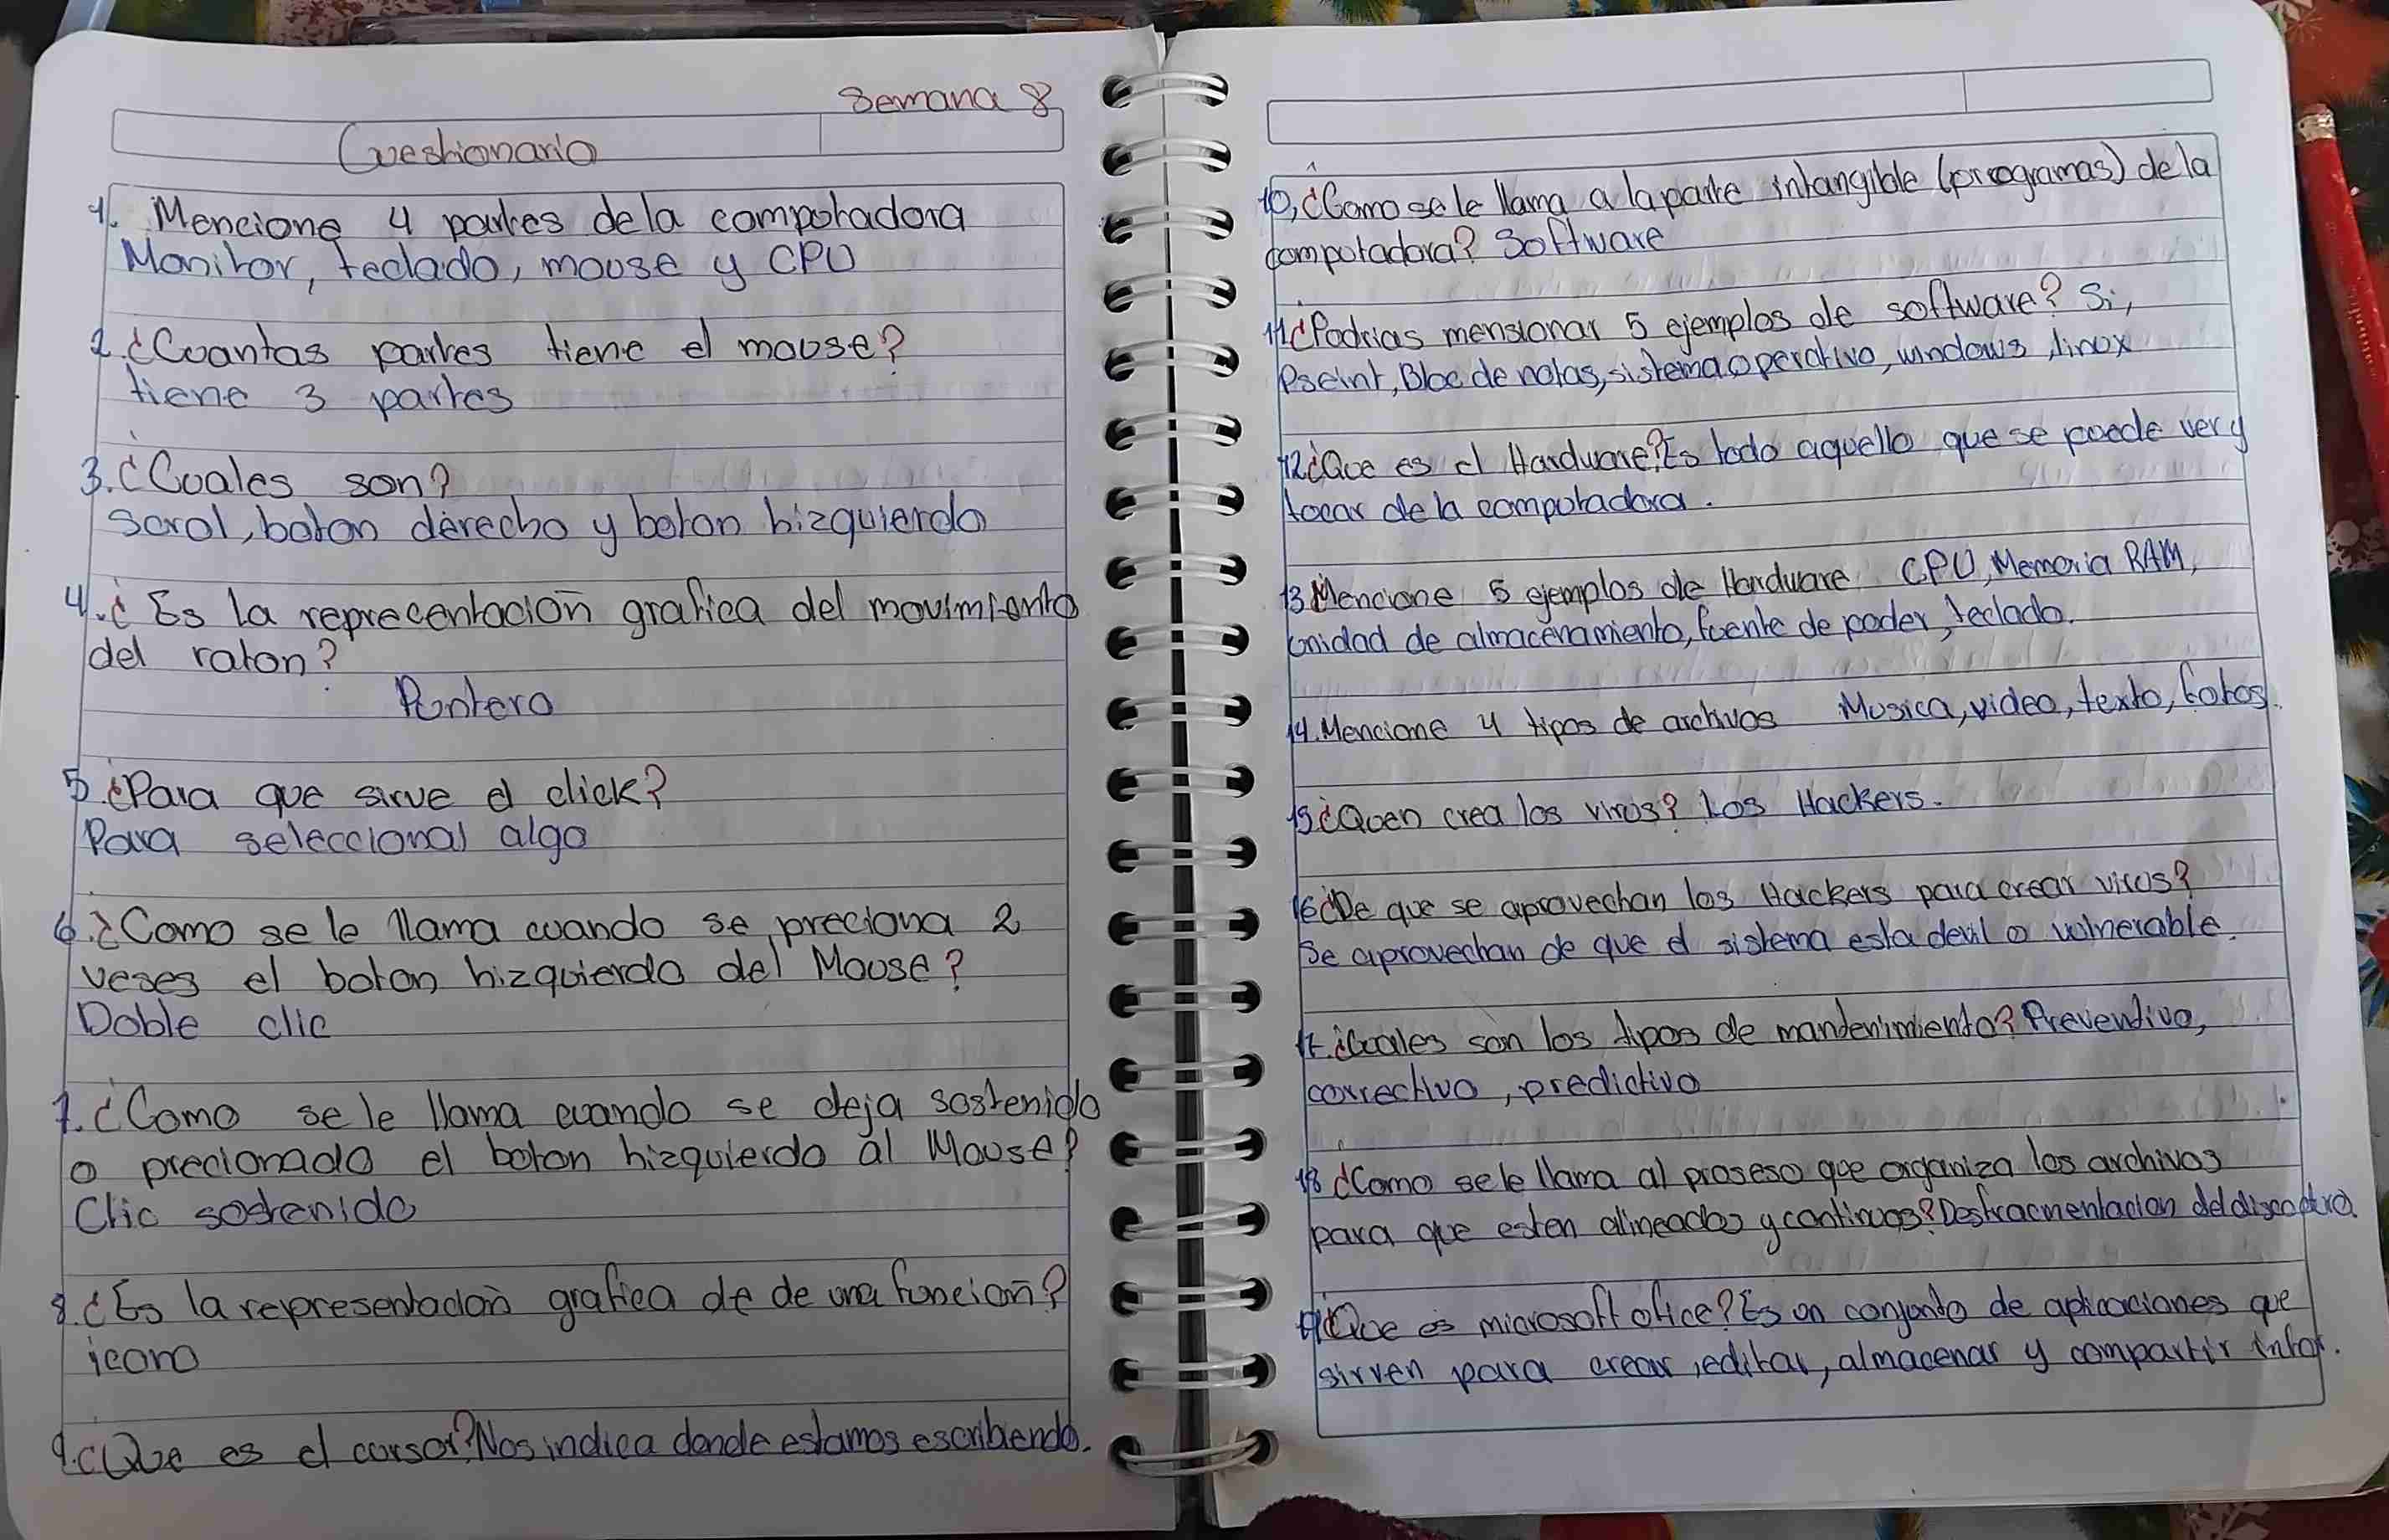 Semana 8
Cuestionario
1. Mencione 4 partes de la computadora
Monitor, teclado, mouse y CPU
2. ¿Cuantas partes tiene el mouse?
tiene 3 partes
3. ¿Cuales son?
scrol, boton derecho y boton hizquierdo
4. ¿Es la reprecentacion grafica del movimiento
del raton?
Puntero
5. ¿Para que sirve el click?
Para seleccional algo
6. ¿Como se le llama cuando se preciona 2
veses el boton hizquierdo del Mouse?
Doble clic
7. ¿Como se le llama cuando se deja sostenido
o precionado el boton hizquierdo al Mouse?
Clic sostenido
8. ¿Es la representacion grafica de de una funcion?
icono
9. ¿Que es el cursor? Nos indica donde estamos escribiendo.
10. ¿Como se le llama a la parte intangible (programas) de la
computadora? Software
11. ¿Podrias mensionar 5 ejemplos de software? Si,
Pseint, Bloc de notas, sistema operativo, windows, linux
12. ¿Que es el Hardware? Es todo aquello que se puede ver y
tocar de la computadora.
13. Mencione 5 ejemplos de Hardware. CPU, Memoria RAM,
unidad de almacenamiento, fuente de poder, teclado.
14. Mencione 4 tipos de archivos Musica, video, texto, fotos.
15. ¿Quen crea los virus? Los Hackers.
16. ¿De que se aprovechan los Hackers para crear virus?
Se aprovechan de que el sistema esta devil o vulnerable.
17. ¿Cuales son los tipos de mantenimiento? Preventivo,
correctivo, predictivo
18. ¿Como se le llama al proseso que organiza los archivos
para que esten alineados y continuos? Desfracmentacion del disco duro.
19. ¿Que es microsoft ofice? Es un conjunto de aplicaciones que
sirven para crear, editar, almacenar y compartir infor.